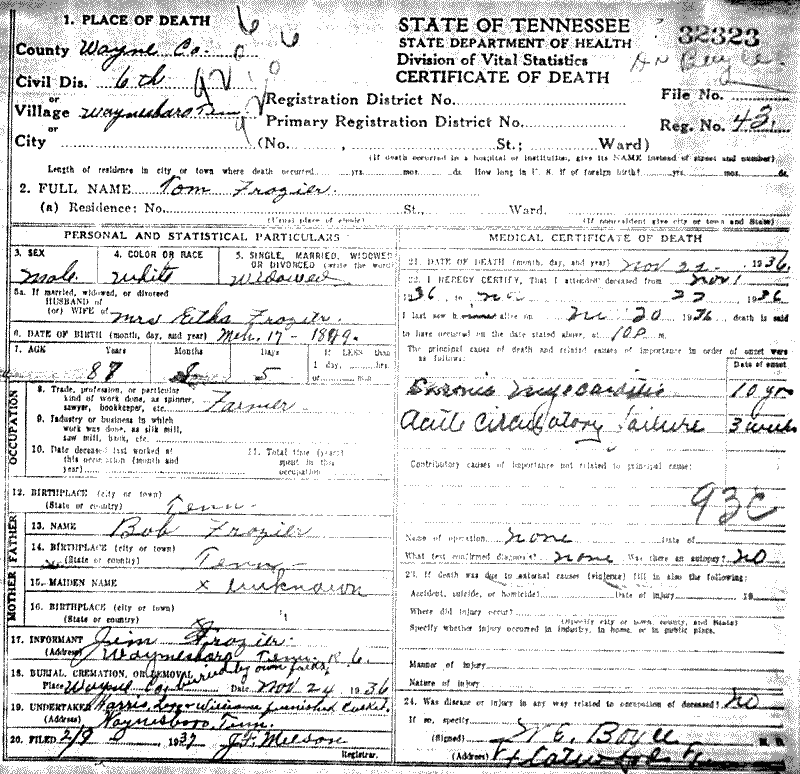 1. PLACE OF DEATH
County Wayne Co.
Civil Dis. 6th
or
Village Waynesboro Tenn
or
City (No. , St.; Ward)
STATE OF TENNESSEE
STATE DEPARTMENT OF HEALTH
Division of Vital Statistics
CERTIFICATE OF DEATH
32323
Registration District No.
Primary Registration District No.
File No.
Reg. No. 43.
(If death occurred in a hospital or institution, give its NAME instead of street and number)
Length of residence in city or town where death occurred yrs. mos. ds. How long in U. S. if of foreign birth? yrs. mos. ds.
2. FULL NAME Tom Frazier.
(a) Residence: No. St., Ward.
(Usual place of abode) (If nonresident give city or town and State)
PERSONAL AND STATISTICAL PARTICULARS
3. SEX
Male
4. COLOR OR RACE
White
5. SINGLE, MARRIED, WIDOWED OR DIVORCED (write the word)
Widowed
5a. If married, widowed, or divorced
HUSBAND of
(or) WIFE of Mrs Frazier.
6. DATE OF BIRTH (month, day, and year) Mch. 17 - 1849.
7. AGE Years Months Days If LESS than
1 day, hrs.
or min.
87 8 5
OCCUPATION
8. Trade, profession, or particular
kind of work done, as spinner,
sawyer, bookkeeper, etc. Farmer
9. Industry or business in which
work was done, as silk mill,
saw mill, bank, etc.
10. Date deceased last worked at
this occupation (month and
year)
11. Total time (years)
spent in this
occupation
12. BIRTHPLACE (city or town)
(State or country) Tenn.
FATHER
13. NAME Bob Frazier
14. BIRTHPLACE (city or town)
(State or country) Tenn
MOTHER
15. MAIDEN NAME x Unknown
16. BIRTHPLACE (city or town)
(State or country) x "
17. INFORMANT Jim Frazier.
(Address) Waynesboro Tenn. R 6.
18. BURIAL, CREMATION, OR REMOVAL buried by own folks
Place Wayne Co. Date Nov 24 1936
19. UNDERTAKER Williams furnished Casket.
(Address) Waynesboro, Tenn.
20. FILED 2/9 1937 J. F. Melson
Registrar.
MEDICAL CERTIFICATE OF DEATH
21. DATE OF DEATH (month, day, and year) Nov 22 - 1936.
22. I HEREBY CERTIFY, That I attended deceased from Nov 1
1936, to Nov 22 1936
I last saw h alive on 20 1936 death is said
to have occurred on the date stated above, at 10 P. m.
The principal cause of death and related causes of importance in order of onset were
as follows:
Date of onset
Chronic Myocarditis 10 yrs
Acute Circulatory failure 3 weeks
Contributory causes of importance not related to principal cause:
93c
Name of operation none Date of
What test confirmed diagnosis? none Was there an autopsy? no
23. If death was due to external causes (violence) fill in also the following:
Accident, suicide, or homicide? Date of injury 19
Where did injury occur?
(Specify city or town, county, and State)
Specify whether injury occurred in industry, in home, or in public place.
Manner of injury
Nature of injury
24. Was disease or injury in any way related to occupation of deceased? no
If so, specify
(Signed) W E. Boyce M. D.
(Address) Flatwoods Tenn